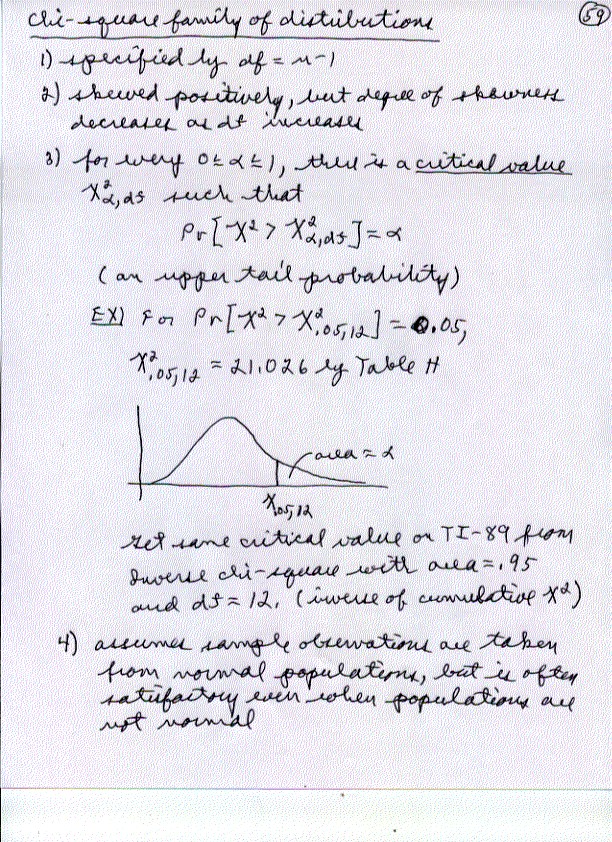 Chi-square family of distributions
59
1) specified by df = n-1
2) skewed positively, but degree of skewness
decreases as df increases
3) for every 0 ≤ α ≤ 1, there is a critical value
X²α,df such that
Pr[X² > X²α,df] = α
(an upper tail probability)
EX) For Pr[X² > X².05,12] = 0.05,
X².05,12 = 21.026 by Table H
area = α
X.05,12
Get same critical value on TI-89 from
Inverse chi-square with area = .95
and df = 12. (inverse of cumulative X²)
4) assumes sample observations are taken
from normal populations, but is often
satisfactory even when populations are
not normal